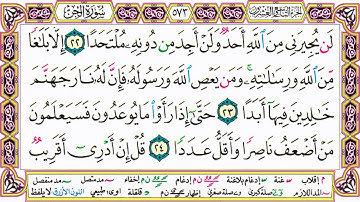 الجزء التاسع والعشرون ٥٧٣ سورة الجن
لَن يُجِيرَنِي مِنَ اللَّهِ أَحَدٌ وَلَنْ أَجِدَ مِن دُونِهِ مُلْتَحَدًا ٢٢ إِلَّا بَلَاغًا
مِّنَ اللَّهِ وَرِسَالَاتِهِ ۚ وَمَن يَعْصِ اللَّهَ وَرَسُولَهُ فَإِنَّ لَهُ نَارَ جَهَنَّمَ
خَالِدِينَ فِيهَا أَبَدًا ٢٣ حَتَّىٰ إِذَا رَأَوْا مَا يُوعَدُونَ فَسَيَعْلَمُونَ
مَنْ أَضْعَفُ نَاصِرًا وَأَقَلُّ عَدَدًا ٢٤ قُلْ إِنْ أَدْرِي أَقَرِيبٌ